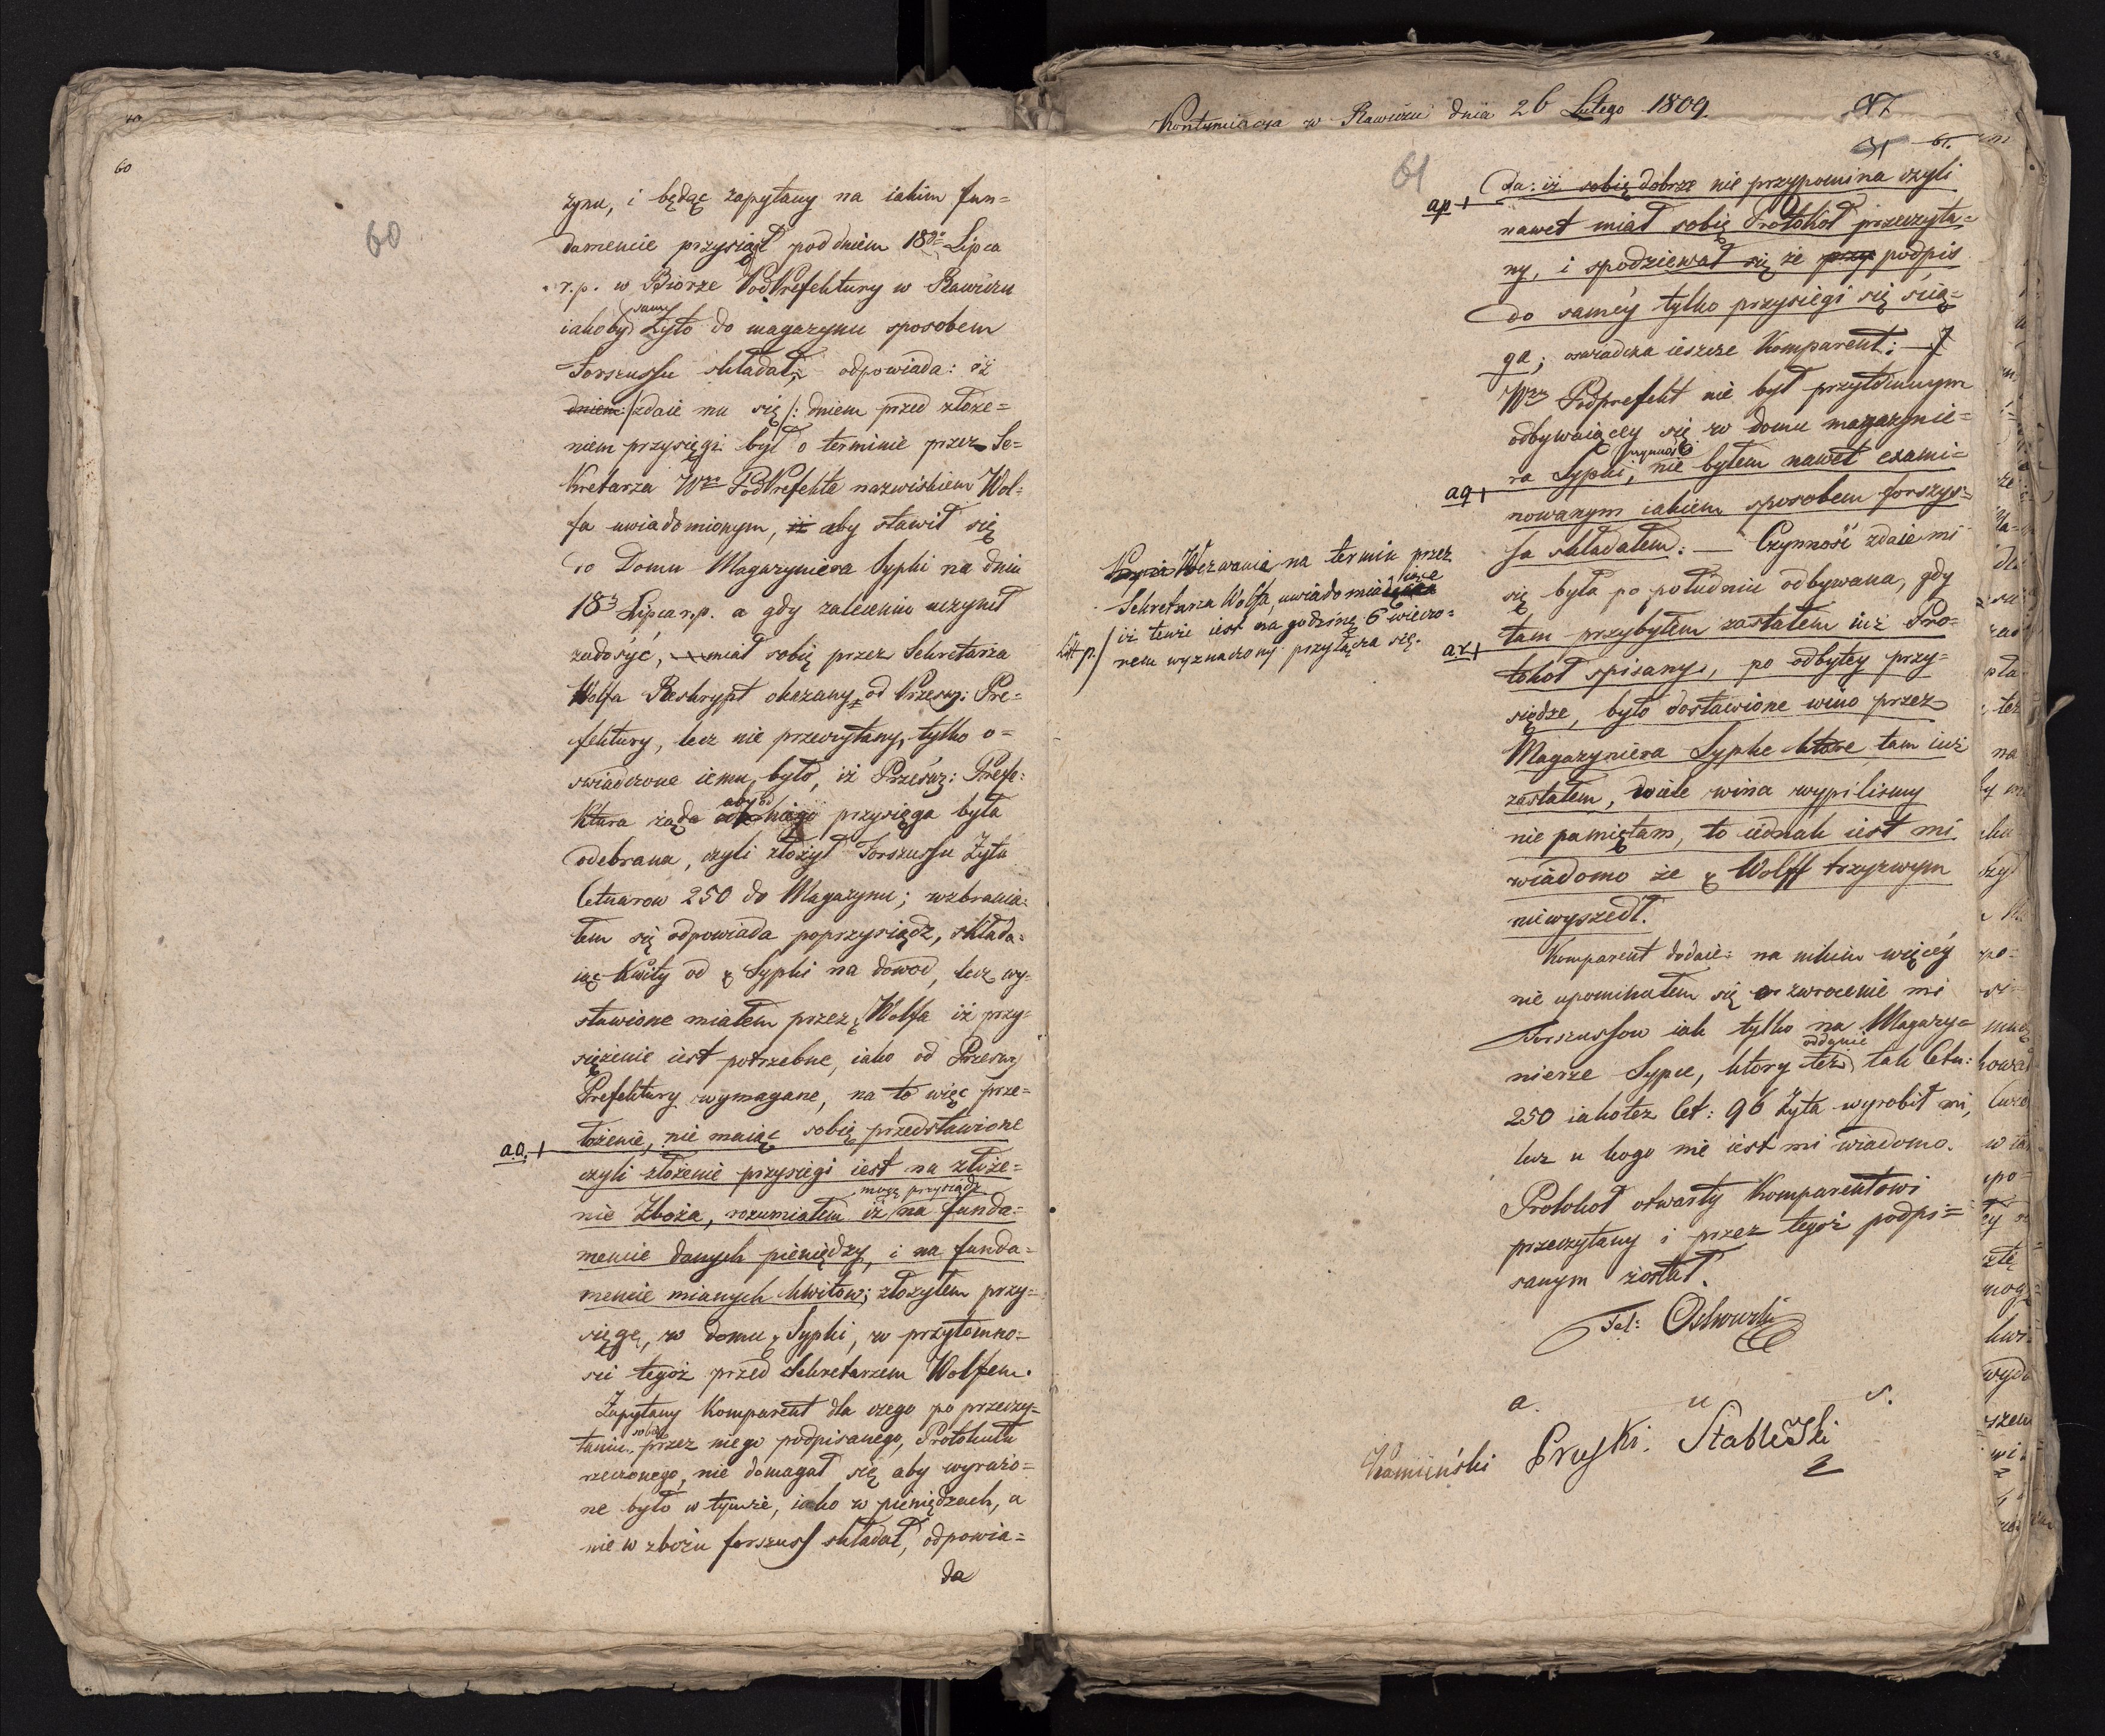 60
60
zynu, i będąc zapytany na iakim fun=
damencie przysiągł pod dniem 18go Lipca
r.p. w Biorze PodPrefektury w Rawiczu
iakoby samy Żyto do magazynu sposobem
Forszussu składał, odpowiada: iż
dniem /:zdaie mu się:/ dniem przed złoże=
niem przysięgi był o terminie przez Se=
kretarza Wgo PodPrefekta nazwiskiem Wol=
fa uwiadomionym, iż aby stawił się
do Domu Magazyniera Sypki na dniu
18 Lipca r.p. a gdy zaleceniu uczynił
zadosyć, miał sobie przez Sekretarza
Wolfa Reskrypt okazany od Prześw: Pre=
fektury, lecz nie przeczytany, tylko o=
swiadczone iemu było, iż Prześw: Prefe:
ktura żąda aby od niego przysięga była
odebrana, czyli złożył Forszussu Żyta
Cetnarow 250 do Magazynu; wzbrania:
łem się odpowiada poprzysiądz, składa=
iąc Kwity od Sypki na dowod, lecz wy=
stawione miałem przez Wolfa iż przy=
siężenie iest potrzebne, iako od Prześw
Prefektury wymagane, na to więc prze=
a.o. łożenie, nie maiąc sobie przedstawione
czyli złożenie przysięgi iest na złoże=
nie Zboża, rozumiałem iż mogę przysiądz na funda=
mencie danych pieniędzy, i na funda=
mencie mianych kwitow; złożyłem przy=
sięgę, w domu Sypki, w przytomno=
sci tegoż przed Sekretarzem Wolfem.
Zapytany Komparent dla czego po przeczy=
taniu sobie przez niego podpisanego, Protokułu
rzeczonego, nie domagał się aby wyrażo=
ne było w tymże, iako w pieniędzach, a
nie w zbożu forszuss składał, odpowia=
da
Kontynuacya w Rawiczu dnia 26 Lutego 1809.
61
61.
a.p. da: iż sobie dobrze nie przypomina czyli
nawet miał sobie Protokoł przeczyta=
ny, i spodziewał się że przy podpis
do saméy tylko przysięgi się scią=
ga; oswiadcza ieszcze Komparent:
Wny Podprefekt nie był przytomnym
odbywaiącey się w domu magazynie=
ra Sypki, czynność nie byłem nawet exami=
a.q. nowanym iakiem sposobem forszys=
sa składałem. — Czynność zdaie mi
się była po południu odbywana, gdy
a.r. tam przybyłem zastałem iuż Pro=
tokoł spisany, po odbytey przy=
siędze, było dostawione wino przez
Magazyniera Sypkę które tam iuż
zastałem, wiele wina wypilismy
nie pamiętam, to iednak iest mi
wiadomo że Wolff trzyzwym
niewyszedł.
Komparent dodaie: na nikim więcéy
nie upominałem się o zwrocenie mi
Forszussow iak tylko na Magazy=
nierze Sypce, ktory też oddanie tak Cetn:
250 iakoteż Cet: 96 Żyta wyrobił mi,
lecz u kogo nie iest mi wiadomo.
Protokoł otwarty Komparentowi
przeczytany i przez tegoż podpi=
sanym został.
a. u. s.
Kamiński Pruski. Stablewski
Wezwanie na termin przez
Sekretarza Wolfa, uwiadomiaiące
iż tenże iest na godzinę 6 wieczo=
Litt p. rem wyznaczony przyłącza się.